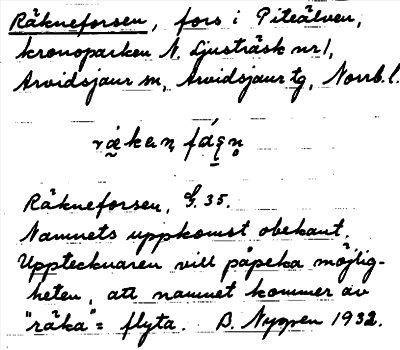 Räkneforsen, fors i Piteälven,
kronoparken N. Ljusträsk nr 1,
Arvidsjaur sn, Arvidsjaur tg, Norrb. l.
Räkneforsen, G. 35.
Namnets uppkomst obekant.
Upptecknaren vill påpeka möjlig-
heten, att namnet kommer av
"räka" = flyta. B. Nygren 1932.